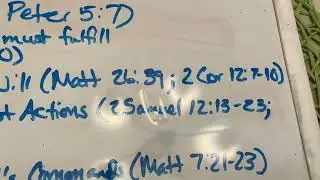 Peter 5:7)
must fulfill
0)
will (Matt 26:39; 2 Cor 12:7-10)
t Actions (2 Samuel 12:13-23;
's Commands (Matt 7:21-23)